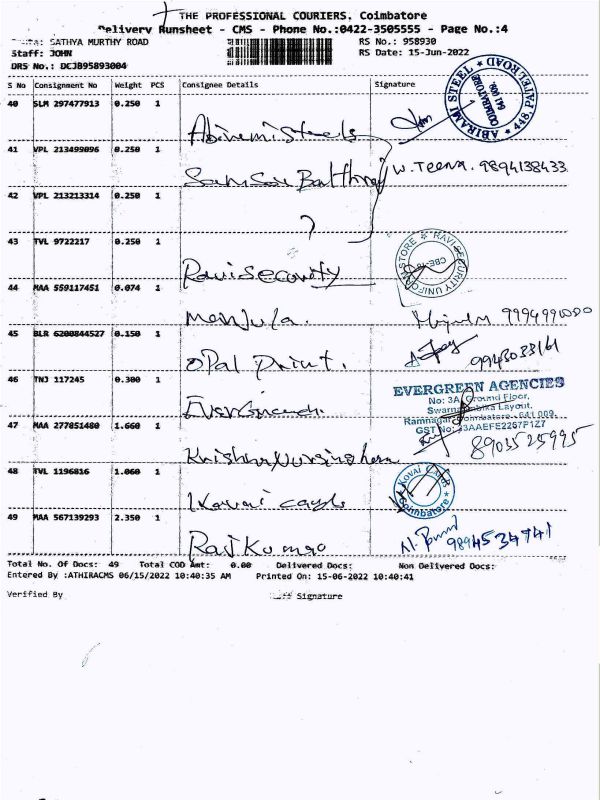 THE PROFESSIONAL COURIERS, Coimbatore
Delivery Runsheet - CMS - Phone No.:0422-3505555 - Page No.:4
SATHYA MURTHY ROAD RS No.: 958930
Staff: JOHN RS Date: 15-Jun-2022
DRS No.: DCJB95893004
S No Consignment No Weight PCS Consignee Details Signature
40 SLM 297477913 0.250 1
Abirami Steels
ABIRAMI STEEL 448, PATEL ROAD
COIMBATORE
641 009
41 VPL 213499096 0.250 1
W. Teena. 9894138433
42 VPL 213213314 0.250 1
?
43 TVL 9722217 0.250 1
Ravi Security
RAVI SECURITY UNIFORM STORE
44 MAA 559117451 0.074 1
Manjula. 9994991000
45 BLR 6200844527 0.150 1
Opal print. 9943033161
46 TNJ 117245 0.300 1
EVERGREEN AGENCIES
No: 3A, Ground Floor,
Layout,
Ramnagar, Coimbatore - 641 009.
GST No: 33AAEFE2267P1Z7
47 MAA 277851480 1.660 1
8903525995
48 TVL 1196816 1.060 1
Kovai Cards
Kovai Cards
Coimbatore
49 MAA 567139293 2.350 1
Raj Kumar
9894534741
Total No. Of Docs: 49 Total COD Amt: 0.00 Delivered Docs: Non Delivered Docs:
Entered By :ATHIRACMS 06/15/2022 10:40:35 AM Printed On: 15-06-2022 10:40:41
Verified By Signature